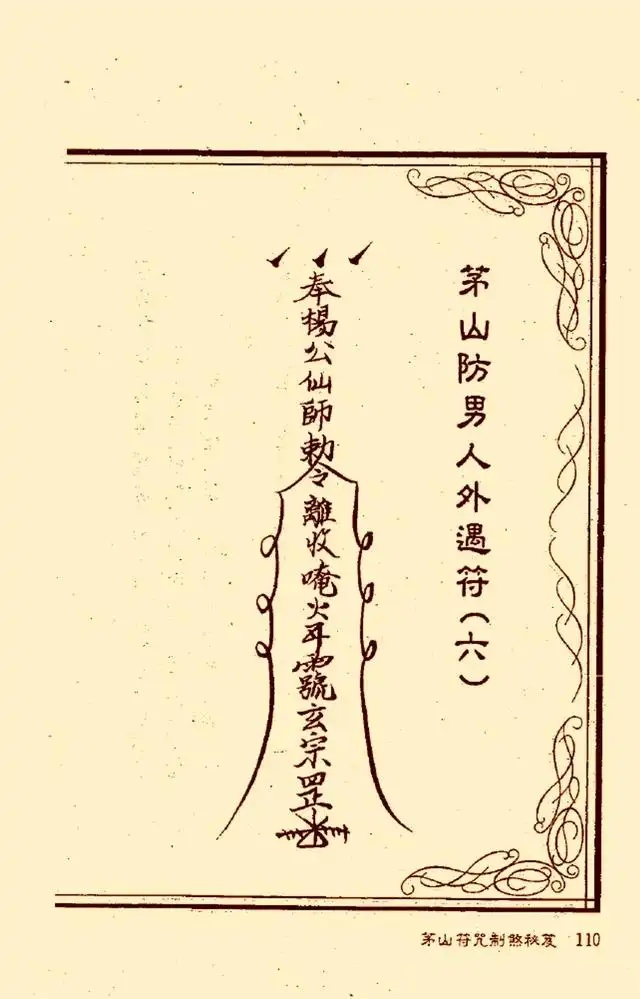 茅山防男人外遇符(六)
奉楊公仙師勅令離收唵火耳玄宗罡
茅山符咒制煞秘笈 110